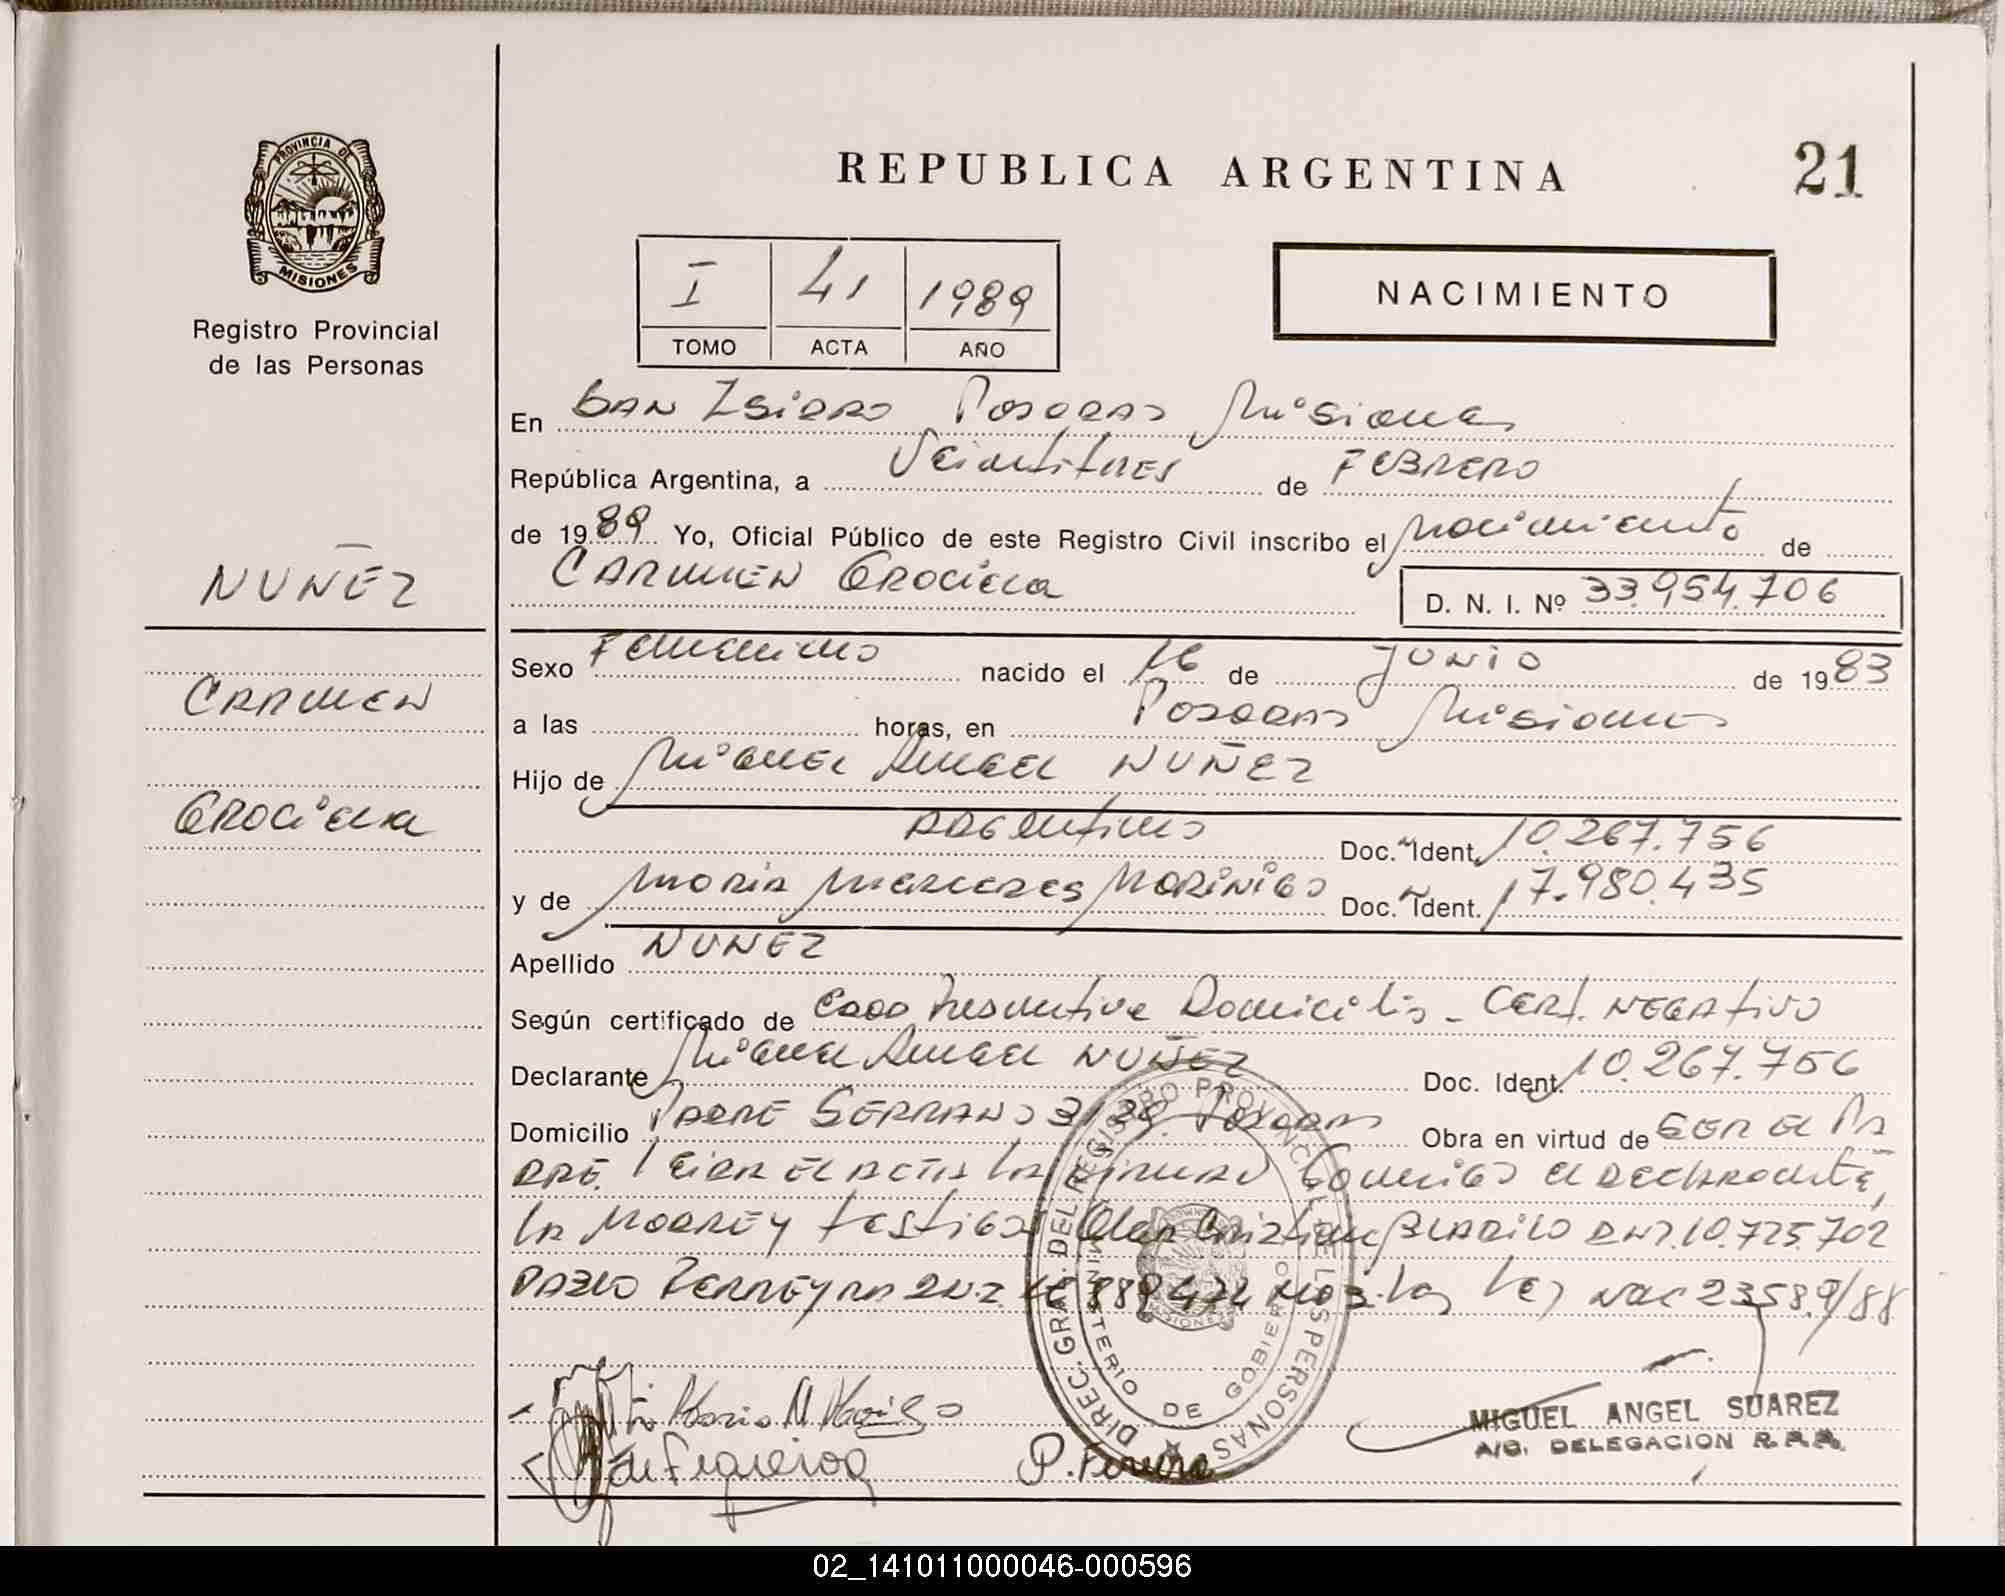 REPUBLICA ARGENTINA
21
PROVINCIA DE
MISIONES
Registro Provincial
de las Personas
I 41 1989
TOMO ACTA AÑO
NACIMIENTO
En San Isidro Posadas Misiones
República Argentina, a Veintitres de FEBRERO
de 1989 Yo, Oficial Público de este Registro Civil inscribo el nacimiento de
CARMEN Graciela
D. N. I. Nº 33.954.706
NUÑEZ
CARMEN
Graciela
Sexo Femenino nacido el 16 de JUNIO de 1983
a las horas, en Posadas Misiones
Hijo de Miguel Angel NUÑEZ
Argentino Doc. Ident. 10.267.756
y de Maria Mercedes Morinigo Doc. Ident. 17.980.435
Apellido NUNEZ
Según certificado de Domicilio - CERT. NEGATIVO
Declarante Miguel Angel NUÑEZ Doc. Ident. 10.267.756
Domicilio PADRE SERRANO Posadas Obra en virtud de SER EL PA
DRE. Leida el acta la firman Conmigo el declarante,
la MADRE y testigos DNI. 10.725.702
PABLO Ley Nac 23589/88
DIREC. GRAL. DEL REGISTRO PROVINCIAL DE LAS PERSONAS
MINISTERIO DE GOBIERNO
MISIONES
Maria M. Morinigo
MIGUEL ANGEL SUAREZ
A/C. DELEGACION R.P.P.
02_141011000046-000596